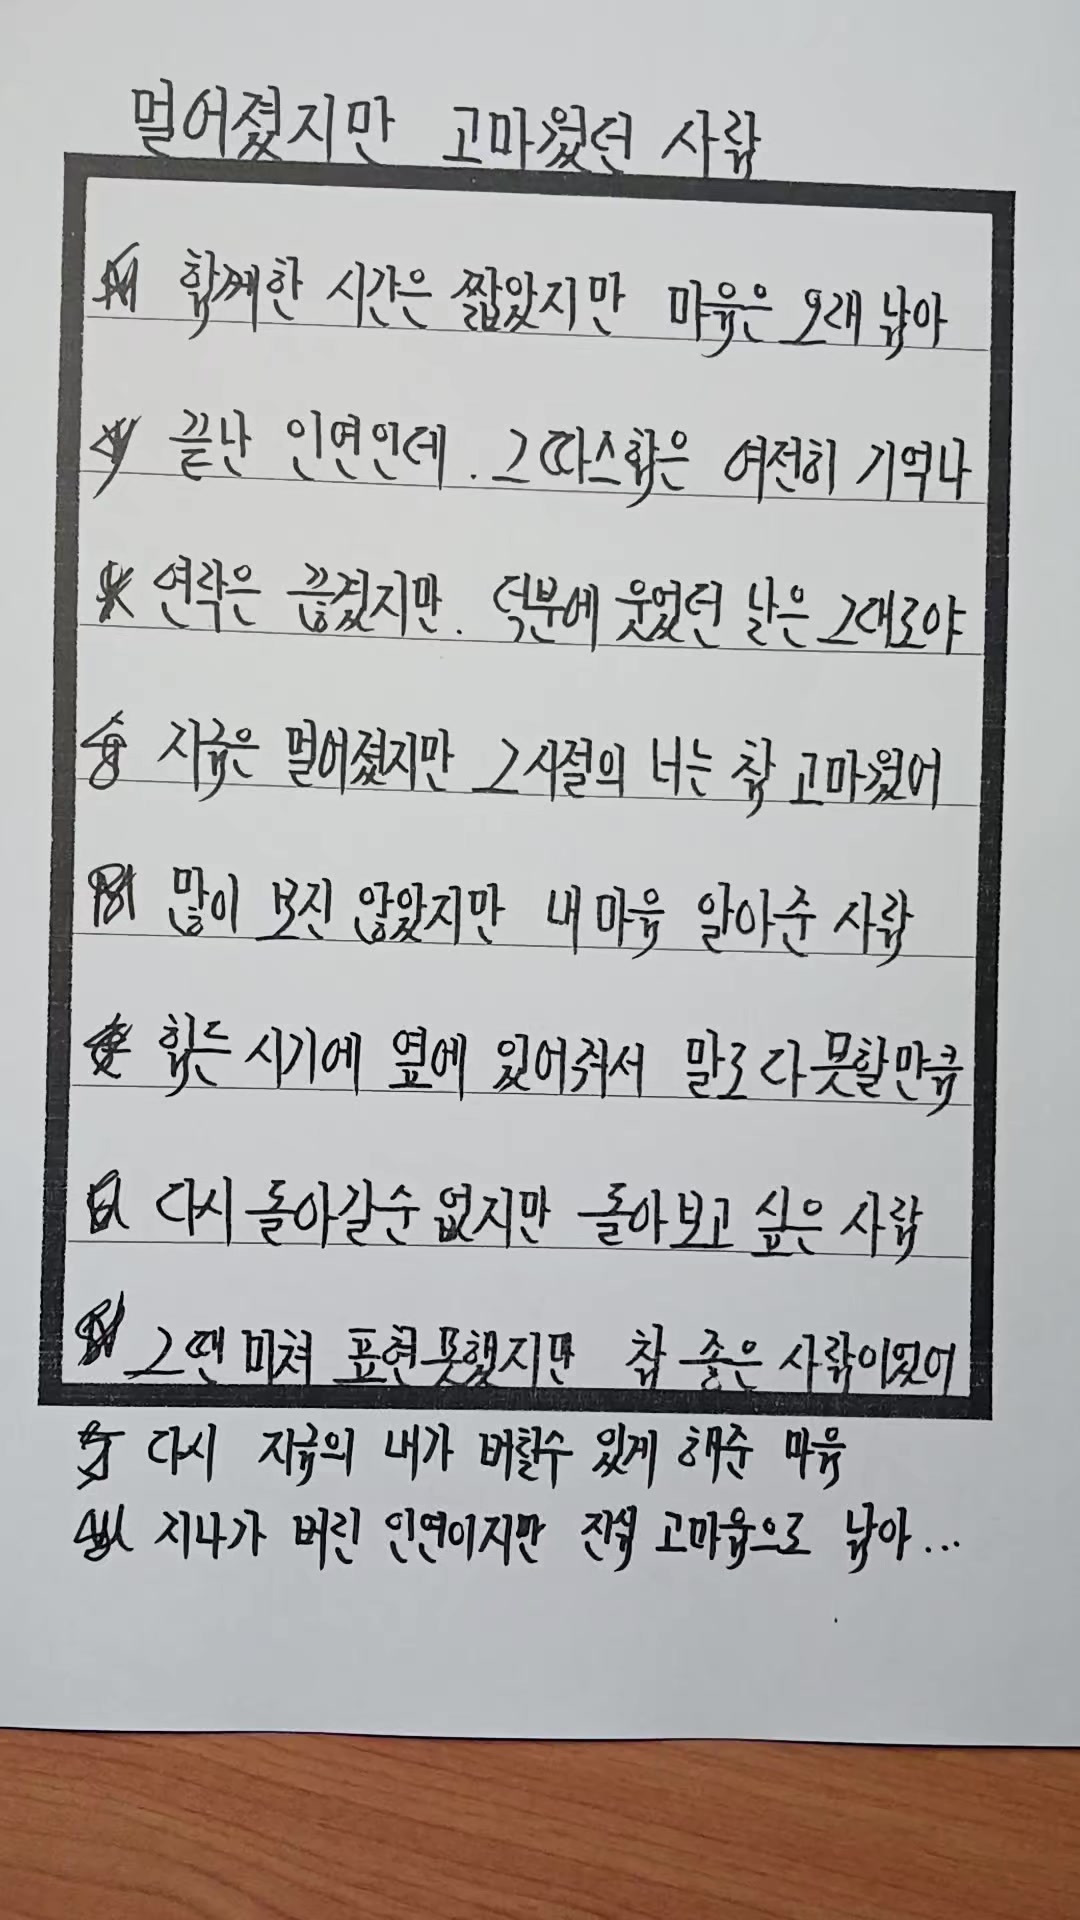 멀어졌지만 고마웠던 사람
함께한 시간은 짧았지만 마음은 오래 남아
끝난 인연인데. 그 따스함은 여전히 기억나
연락은 끊겼지만. 덕분에 웃었던 날은 그대로야
지금은 멀어졌지만 그 시절의 너는 참 고마웠어
많이 보진 않았지만 내 마음 알아준 사람
힘든 시기에 옆에 있어줘서 말로 다 못할 만큼
다시 돌아갈수 없지만 돌아보고 싶은 사람
그땐 미쳐 표현 못했지만 참 좋은 사람이었어
다시 지금의 내가 버틸수 있게 해준 마음
지나가 버린 인연이지만 진심 고마움으로 남아...